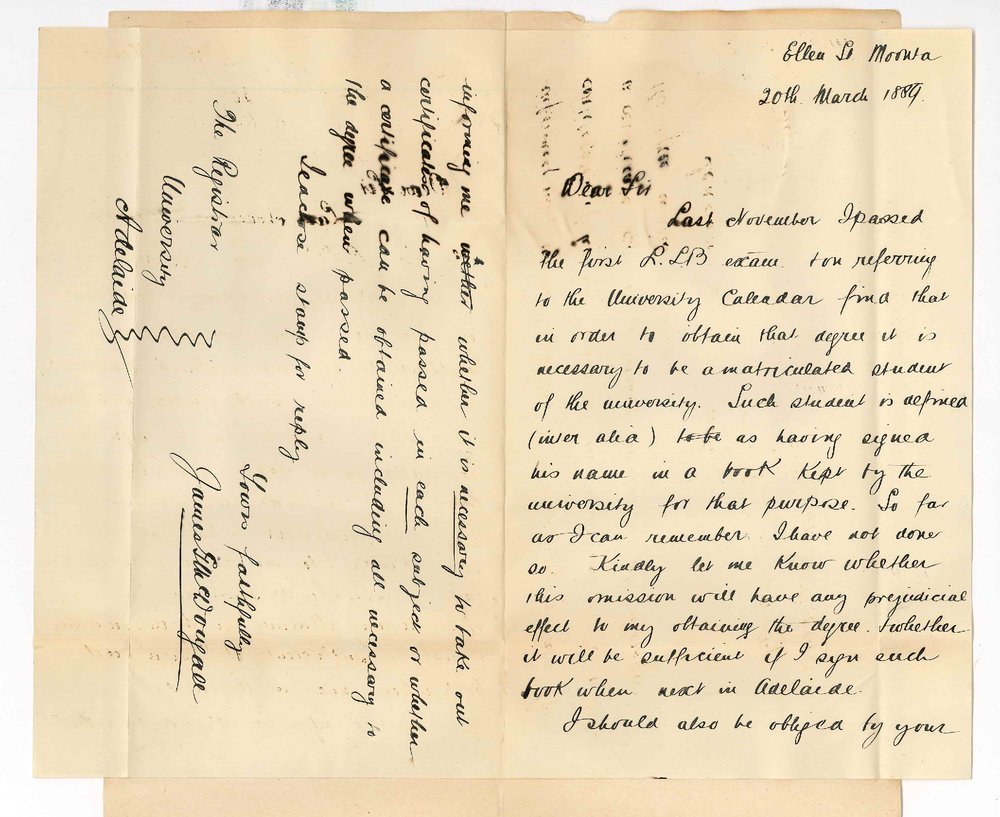 Ellen St Moonta
20th March 1889.
Dear Sir
Last November I passed
the first L.LB exam. & on referring
to the University Calendar find that
in order to obtain that degree it is
necessary to be a matriculated student
of the university. Such student is defined
(inter alia) to be as having signed
his name in a book kept by the
university for that purpose. So far
as I can remember I have not done
so. Kindly let me know whether
this omission will have any prejudicial
effect to my obtaining the degree. & whether
it will be sufficient if I sign such
book when next in Adelaide.
I should also be obliged by your
informing me wether whether it is necessary to take out
certificates of having passed in each subject or whether
a certificate can be obtained including all necessary to
the degree when passed.
I enclose stamp for reply
Yours faithfully
James McDougall
The Registrar
University
Adelaide